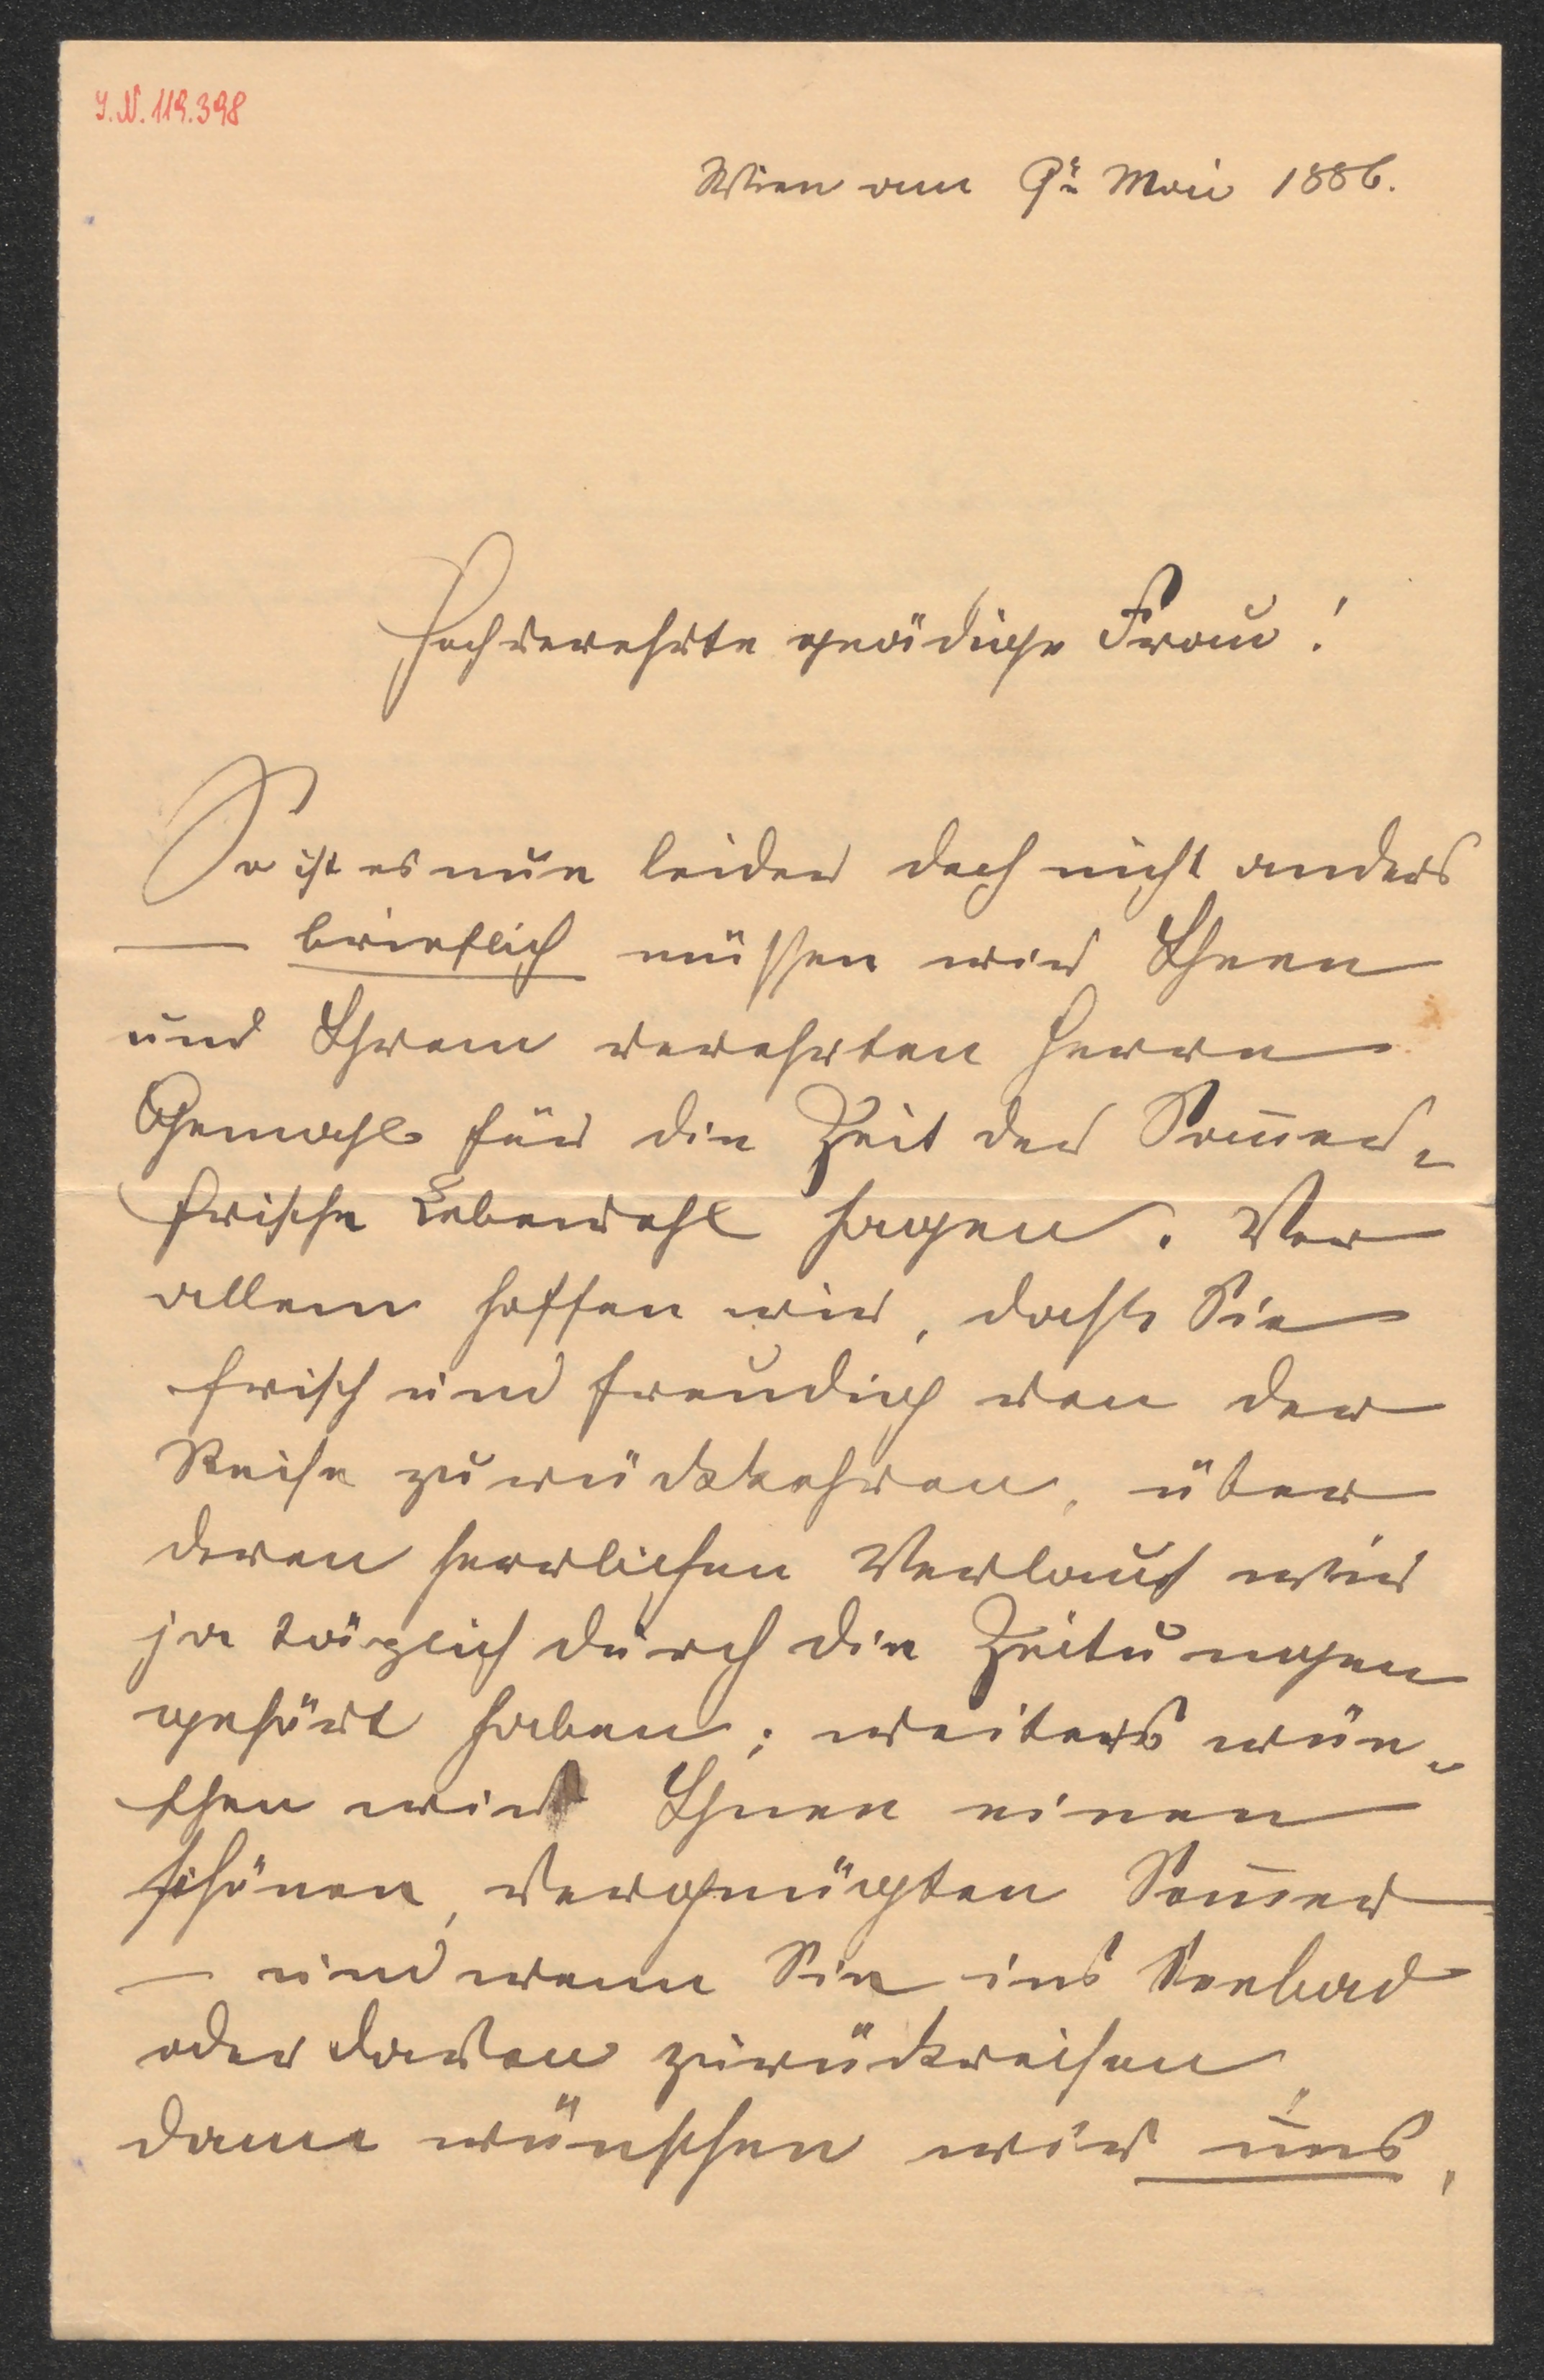 I.N. 119.398
Wien am 9t Mai 1886.
Hochverehrte gnädige Frau!
So ist es nun leider doch nicht anders
— brieflich müssen wir Ihnen
und Ihrem verehrten Herrn
Gemahl für die Zeit der Som̄er-
frische Lebewohl sagen. Vor
allem hoffen wir, dass Sie
frisch und freudig von der
Reise zurückkehren, über
deren herrlichen Verlauf wir
ja täglich durch die Zeitungen
gehört haben; weiters wün-
schen wir Ihnen einen
schönen, vergnügten Som̄er
— und wenn Sie ins Seebad
oder davon zurückreisen,
dann wünschen wir uns,